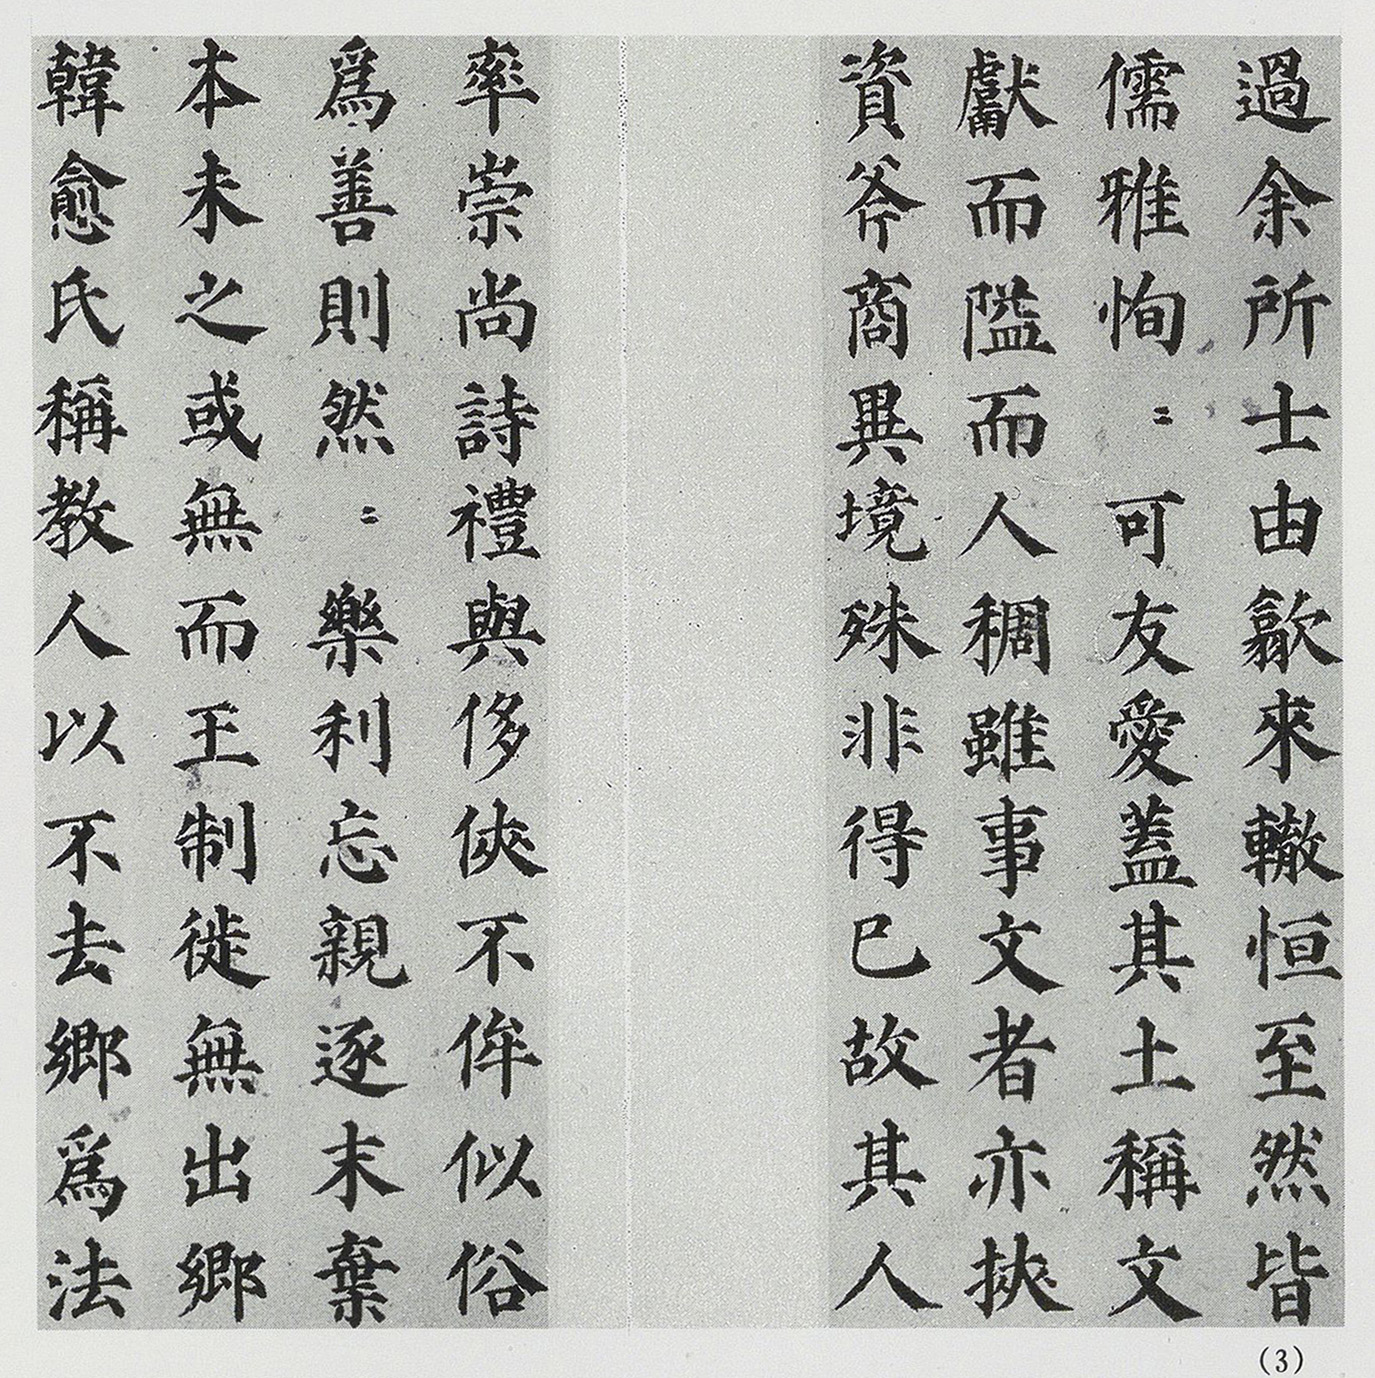 過余所士由歙來轍恒至然皆
儒雅恂〻可友愛蓋其土稱文
獻而隘而人稠雖事文者亦挾
資斧商異境殊非得已故其人
率崇尚詩禮與侈俠不侔似俗
爲善則然〻樂利忘親逐末棄
本未之或無而王制徙無出鄉
韓愈氏稱教人以不去鄉爲法
(3)